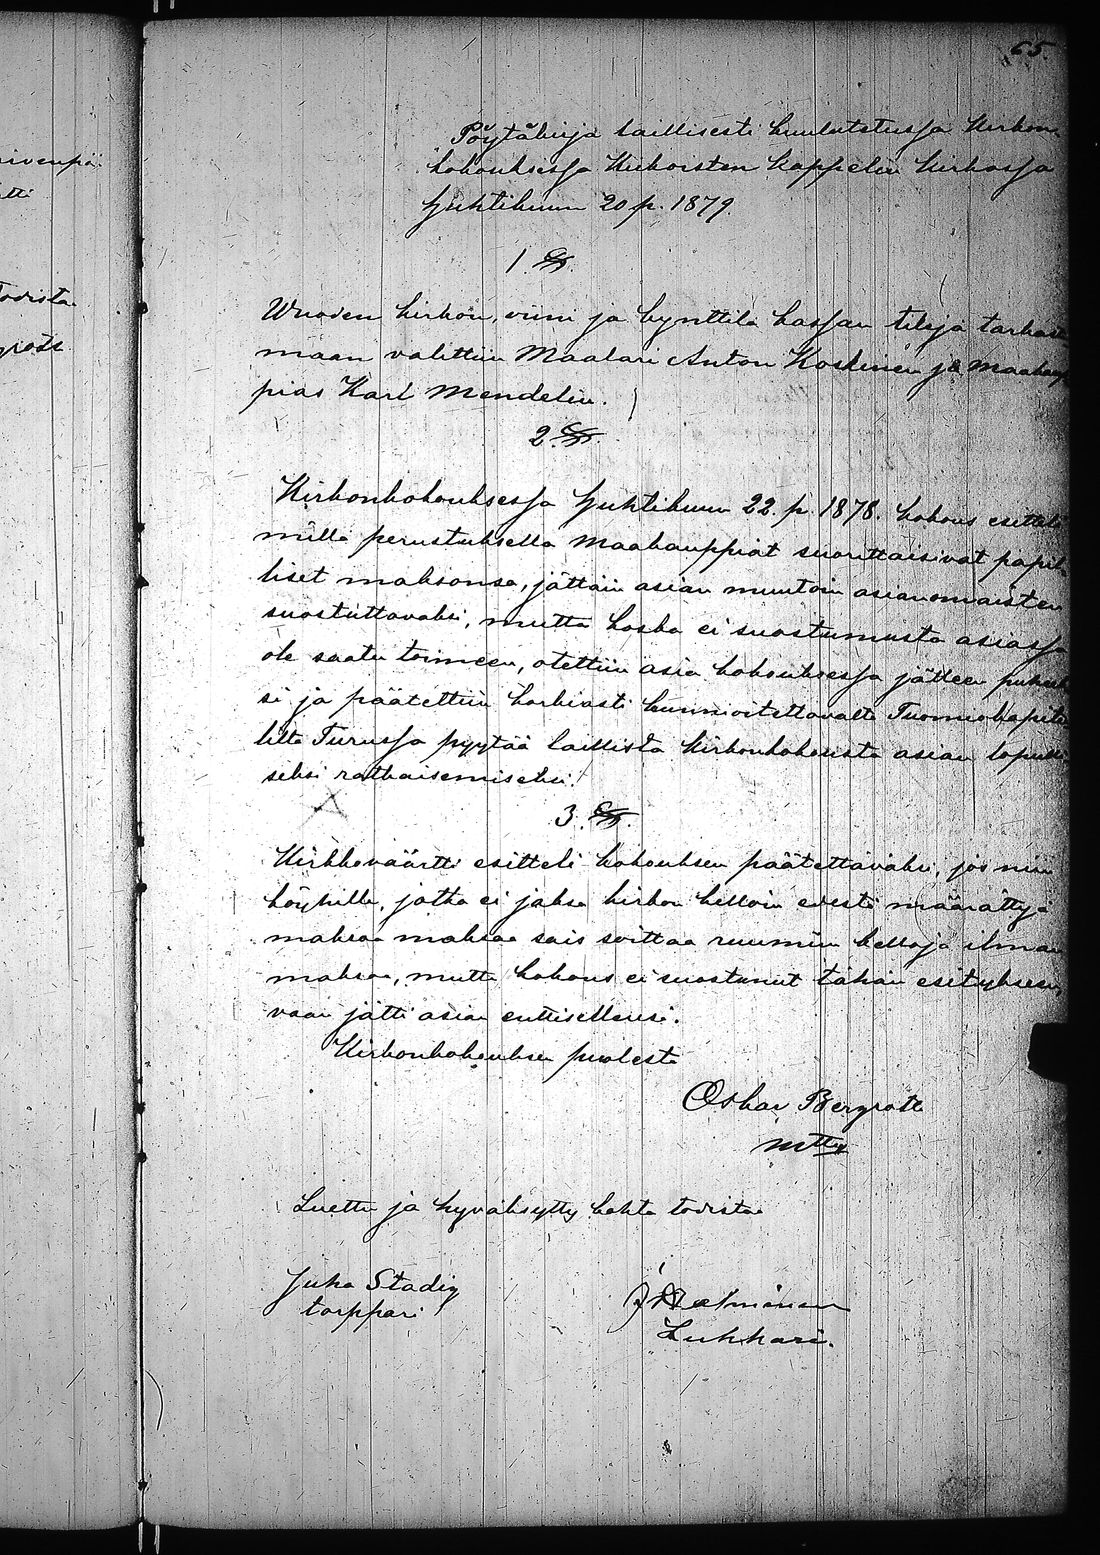 65.
Pöytäkirja laillisesti kuulutetussa Kirkon
kokouksessa Kiikoisten kappelin kirkossa
Huhtikuun 20 p. 1879.
1. §.
Wuoden kirkon, viini ja kynttilä kassan tilejä tarkasta
maan valittiin Maalari Anton Koskinen ja Maakaup
pias Karl Mendelin.
2. §.
Kirkonkokouksessa Huhtikuun 22. p. 1878. kokous esitteli
millä perustuksella Maakauppiat suorittaisivat papil
liset maksonsa, jättäin asian muutoin asianomaisten
suostuttavaksi, mutta koska ei suostumusta asiassa
ole saatu toimeen, otettiin asia kokouksessa jälleen puheek
si ja päätettiin korkiasti kunnioitettavalta Tuomiokapitu
lilta Turussa pyytää laillista kirkonkokousta asian lopulli
seksi ratkaisemiseksi.
3. §.
Kirkkoväärtti esitteli kokouksen päätettäväksi, jos niin
köyhille, jotka ei jaksa kirkon kelloin edestä määrättyjä
maksoa maksaa sais soittaa ruumiin kelloja ilman
maksoa, mutta kokous ei suostunut tähän esitykseen,
vaan jätti asian entisellensi.
Kirkonkokouksen puolesta
Oskar Bergroth
Luettu ja hyväksytty kohta todistaa
Juha Stadig
torppari
Lukkari.
ivenpä
tti
todistaa
groth